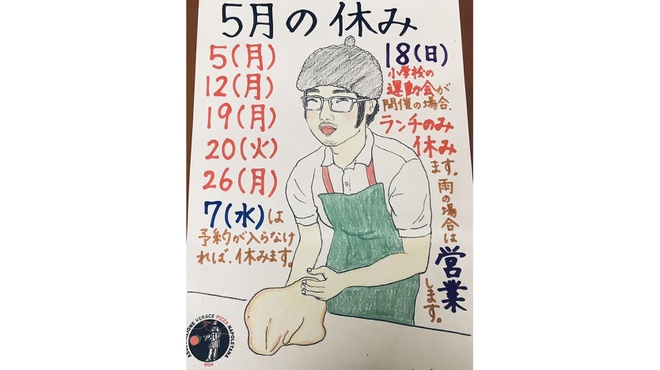 5月の休み
5(月)
12(月)
19(月)
20(火)
26(月)
7(水)は
予約が入らなけ
れば、休みます。
18(日)
小学校の
運動会が
開催の場合、
ランチのみ
休み
ます。雨の場合は
営業
します。
ASSOCIAZIONE VERACE PIZZA NAPOLETANA